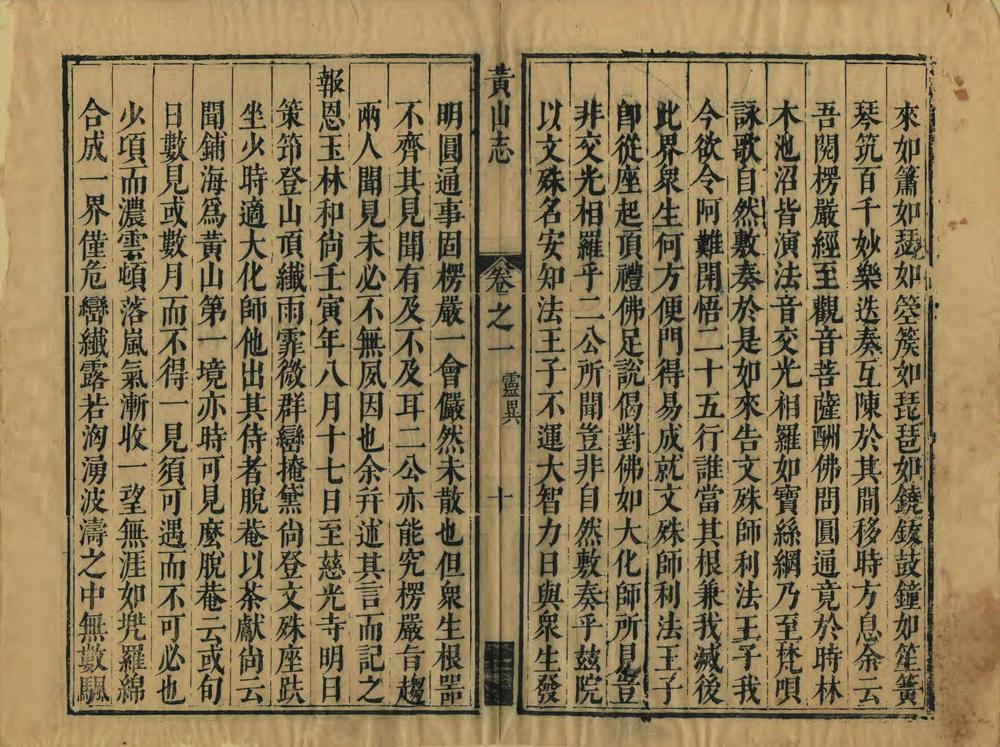 來如簫如瑟如箜篌如琵琶如鐃鈸鼓鐘如笙簧
琴筑百千妙樂迭奏互陳於其間移時方息余云
吾閱楞嚴經至觀音菩薩酬佛問圓通竟於時林
木池沼皆演法音交光相羅如寶絲網乃至梵唄
詠歌自然敷奏於是如來告文殊師利法王子我
今欲令阿難開悟二十五行誰當其根兼我滅後
此界衆生何方便門得易成就文殊師利法王子
卽從座起頂禮佛足說偈對佛如大化師所見豈
非交光相羅乎二公所聞豈非自然敷奏乎茲院
以文殊名安知法王子不運大智力日與衆生發
黃山志
卷之一
靈異
十
明圓通事固楞嚴一會儼然未散也但衆生根器
不齊其見聞有及不及耳二公亦能究楞嚴旨趨
兩人聞見未必不無夙因也余幷述其言而記之
報恩玉林和尙壬寅年八月十七日至慈光寺明日
策笻登山頂纖雨霏微群巒掩黛尙登文殊座趺
坐少時適大化師他出其侍者脫菴以茶獻尙云
聞鋪海爲黃山第一境亦時可見麼脫菴云或旬
日數見或數月而不得一見須可遇而不可必也
少項而濃雲頓落嵐氣漸收一望無涯如兠羅綿
合成一界僅危巒纖露若洶湧波濤之中無數颿